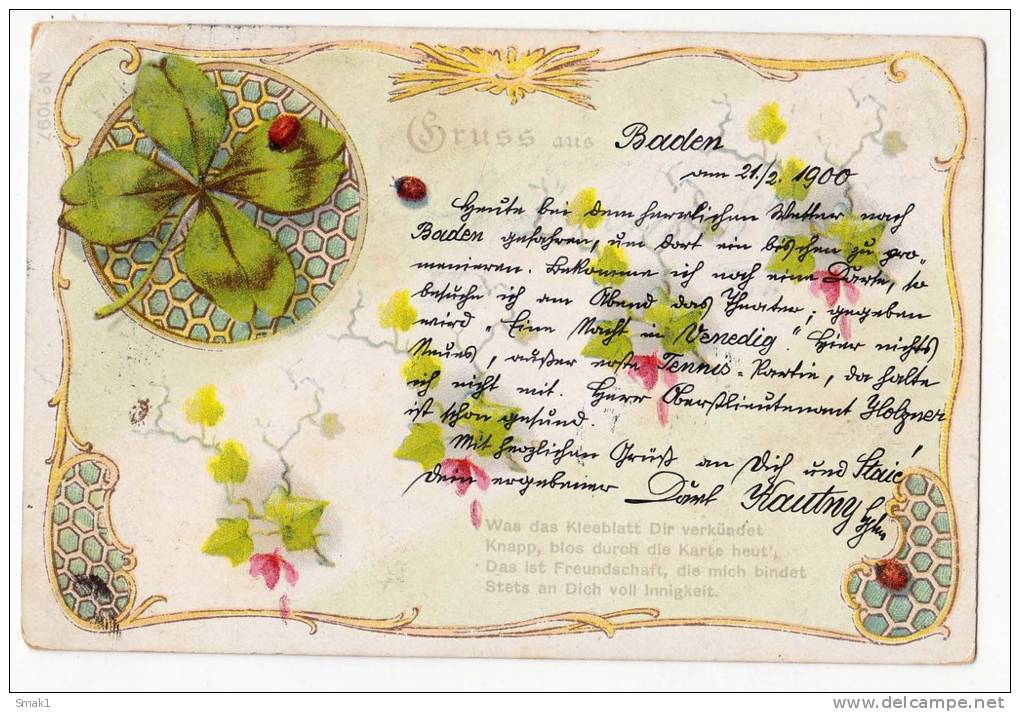 No 1097.
Gruss aus Baden
am 21./2. 1900
Heute bei dem herrlichen Wetter nach
Baden gefahren, um dort ein bischen zu pro-
menieren. Bekomme ich noch eine Karte, so
besuche ich am Abend das Theater; gegeben
wird „Eine Nacht in Venedig". Hier nichts
Neues, außer erste Tennis-Partie, da halte
ich nicht mit. Herr Oberstlieutenant Holzner
ist schon gesund.
Mit herzlichen Grüß an Dich und
Dein ergebener Karl Kautny
Was das Kleeblatt Dir verkündet
Knapp, blos durch die Karte heut',
Das ist Freundschaft, die mich bindet
Stets an Dich voll Innigkeit.
Smak1
www.delcampe.net